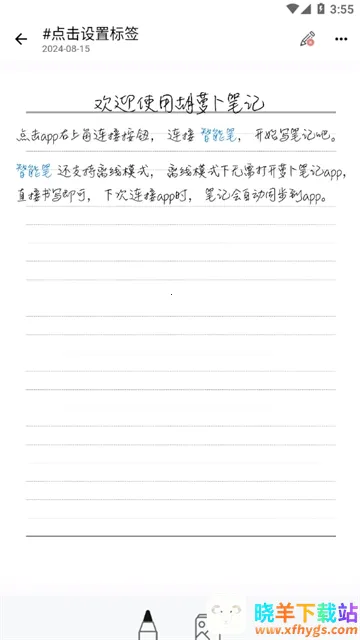 3:55
#点击设置标签
2024-08-15
欢迎使用胡萝卜笔记
点击app右上角连接按钮，连接 智能笔，开始写笔记吧。
智能笔 还支持离线模式，离线模式下无需打开萝卜笔记app，
直接书写即可，下次连接app时，笔记会自动同步到app。
晓羊下载站
www.xfhygs.com